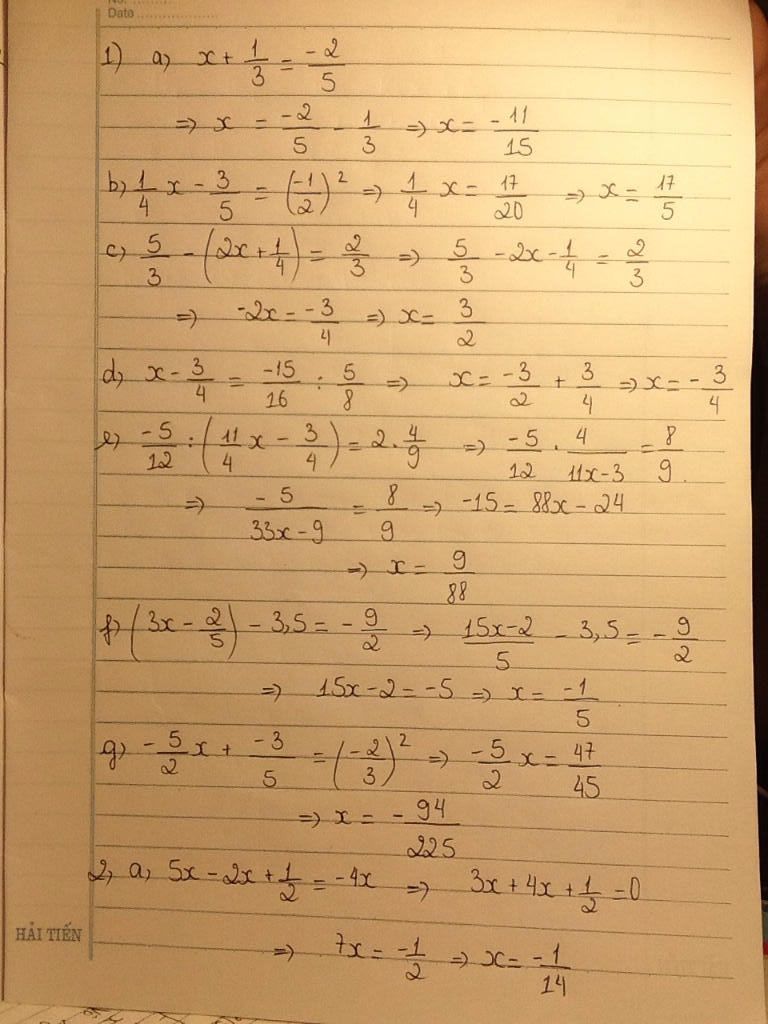 No. ..................
Date ..................
1) a) x + 1/3 = -2/5
=> x = -2/5 - 1/3 => x = -11/15
b) 1/4 x - 3/5 = (-1/2)² => 1/4 x = 17/20 => x = 17/5
c) 5/3 - (2x + 1/4) = 2/3 => 5/3 - 2x - 1/4 = 2/3
=> -2x = -3/4 => x = 3/2
d) x - 3/4 = -15/16 : 5/8 => x = -3/2 + 3/4 => x = -3/4
e) -5/12 : (11/4 x - 3/4) = 2 . 4/9 => -5/12 . 4/(11x-3) = 8/9
=> -5/(33x-9) = 8/9 => -15 = 88x - 24
=> x = 9/88
f) (3x - 2/5) - 3,5 = -9/2 => (15x-2)/5 - 3,5 = -9/2
=> 15x - 2 = -5 => x = -1/5
g) -5/2 x + -3/5 = (-2/3)² => -5/2 x = 47/45
=> x = -94/225
2, a, 5x - 2x + 1/2 = -4x => 3x + 4x + 1/2 = 0
=> 7x = -1/2 => x = -1/14
HẢI TIẾN